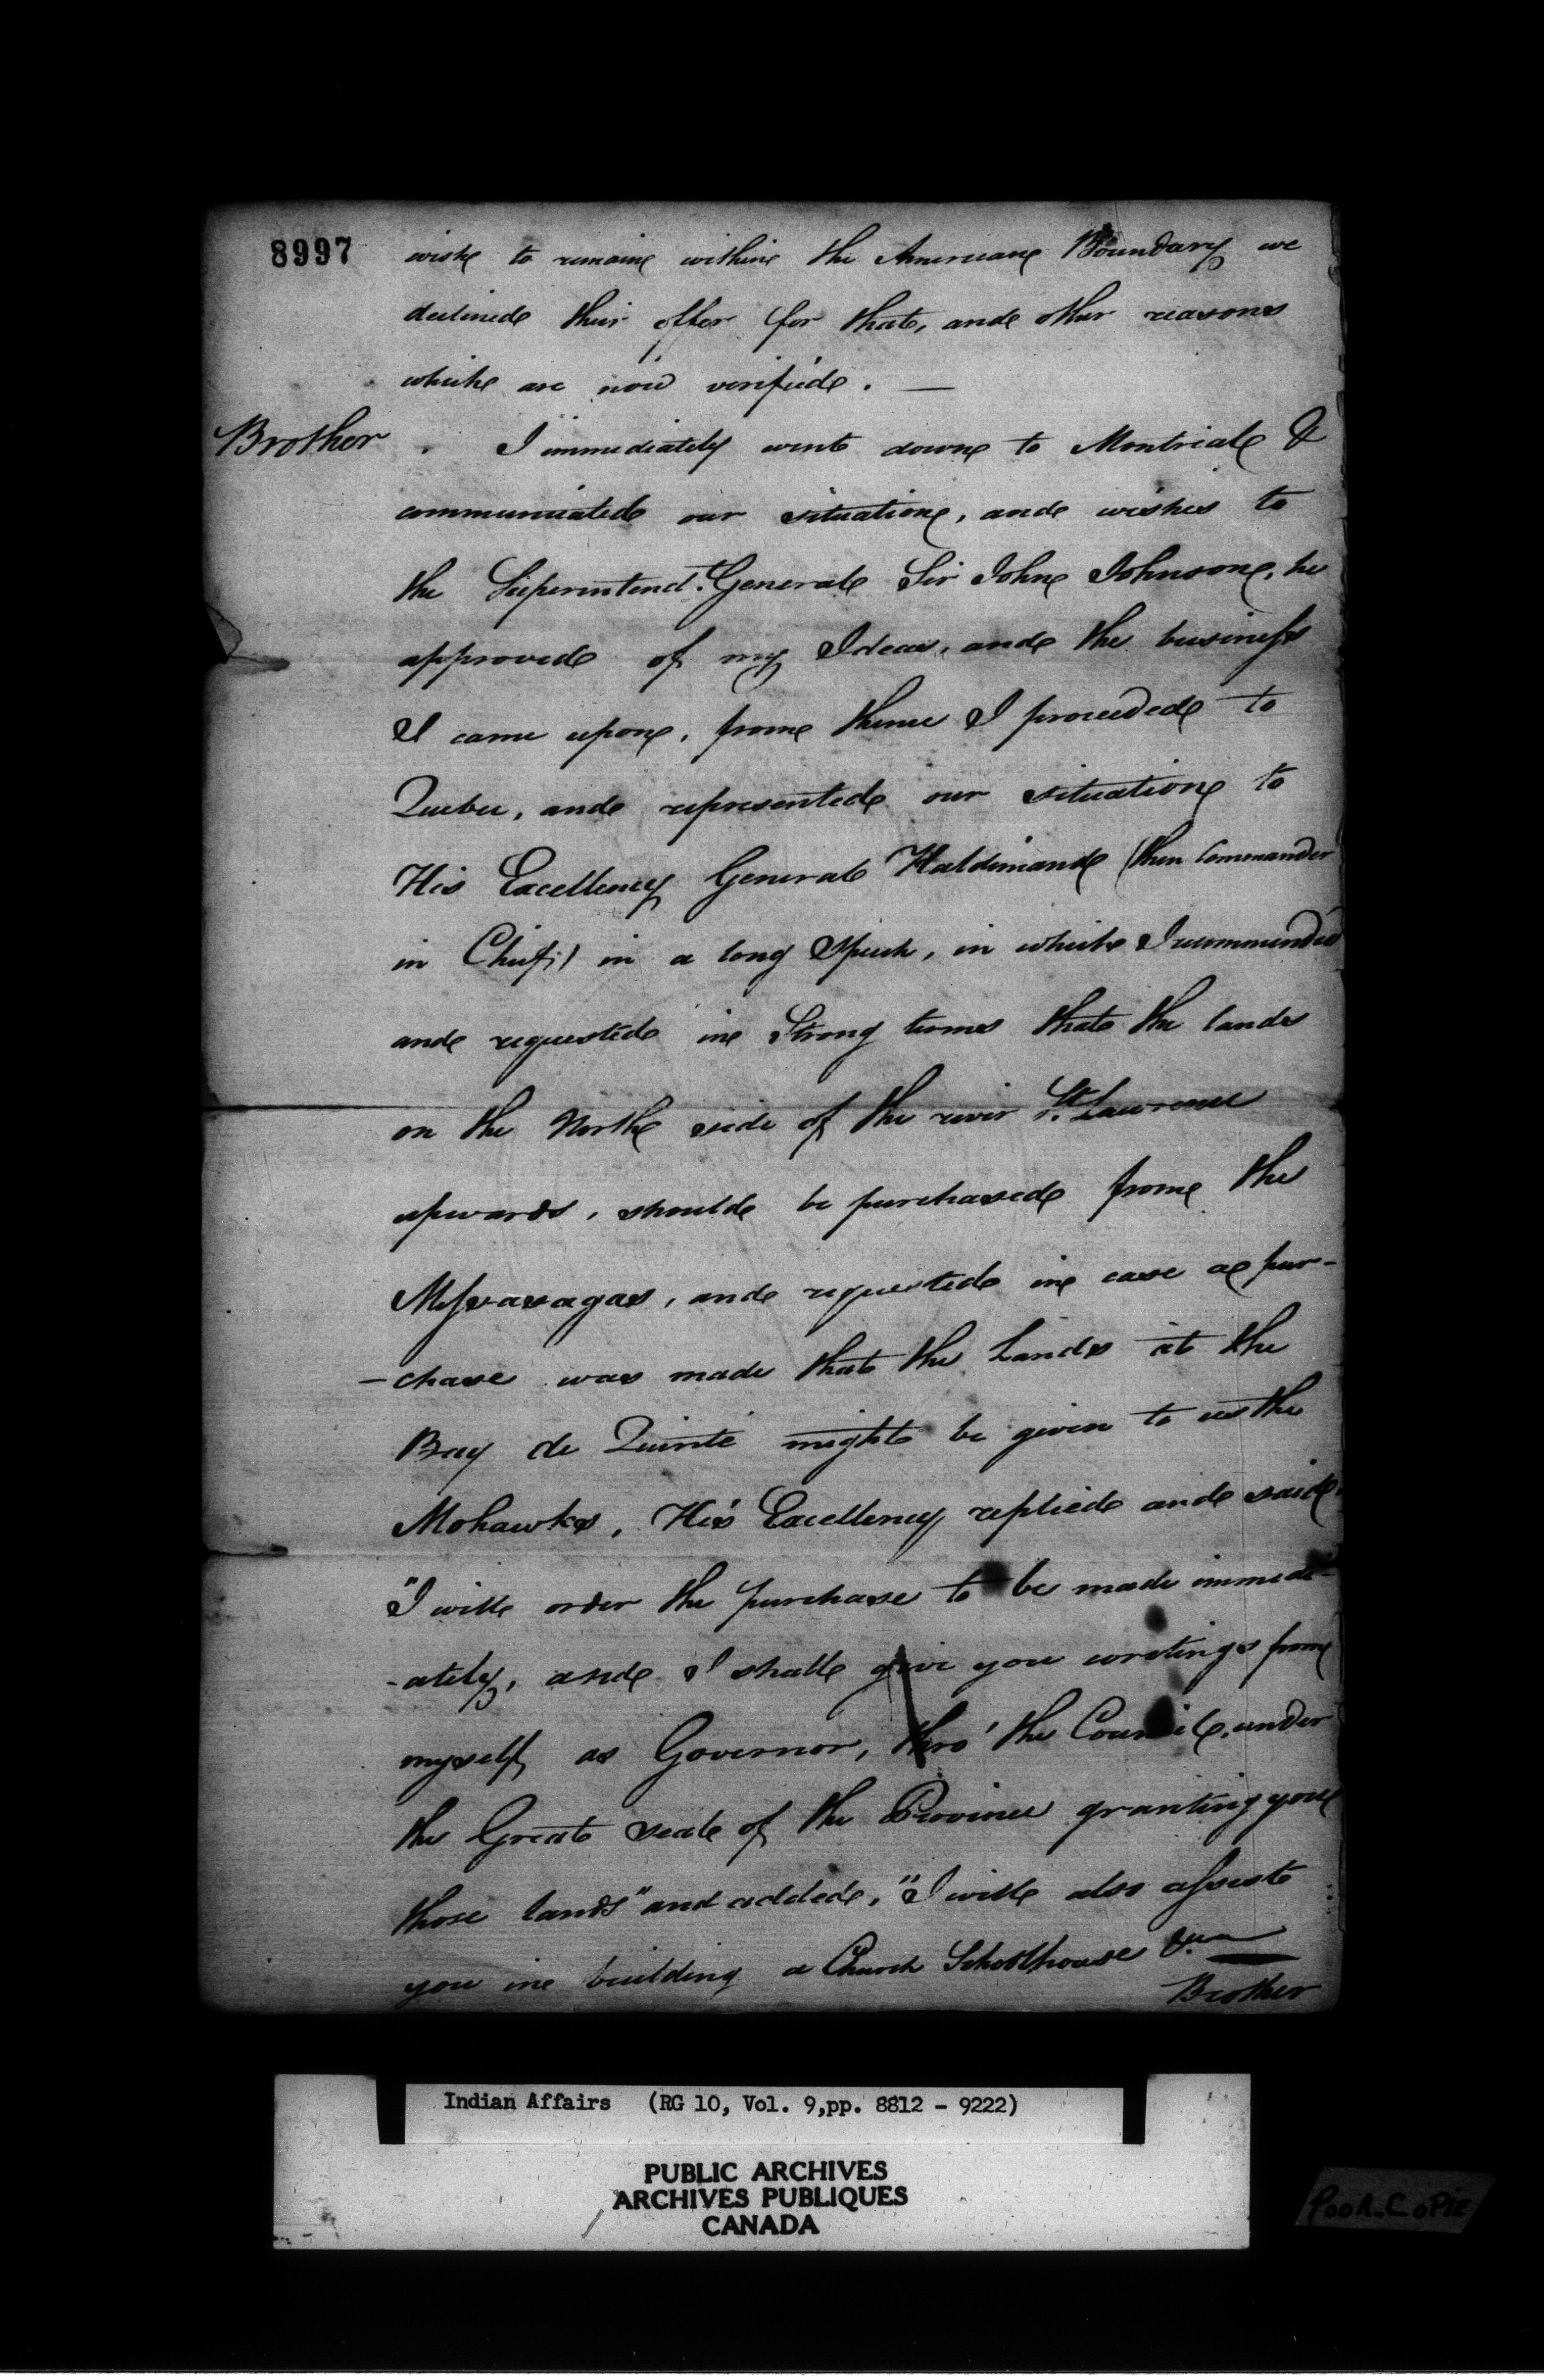 8997
wish to remain within the American Boundary we
declined their offer for that, and other reasons
which are now verified. —
Brother . I immediately went down to Montreal &
communicated our situation, and wishes to
the Superintendt. General Sir John Johnson, he
approved of my Ideas, and the business
I came upon, from thence I proceeded to
Quebec, and represented our situation to
His Excellency General Haldimand (then Commander
in Chief;) in a long Speech, in which I recommended
and requested in Strong terms that the lands
on the North side of the river St. Lawrence
upwards, should be purchased from the
Messasagas, and requested in case a pur-
-chase was made that the Lands at the
Bay de Quinté might be given to us the
Mohawks, His Excellency replied and said
"I will order the purchase to be made immedi-
-ately, and I shall give you writings from
myself, as Governor, thro' the Council, under
the Great seal of the Province granting you
those lands" and added, "I will also assist
you in building a Church Schoolhouse &ca —
Brother
Indian Affairs (RG 10, Vol. 9,pp. 8812 - 9222)
PUBLIC ARCHIVES
ARCHIVES PUBLIQUES
CANADA
POOR COPIE